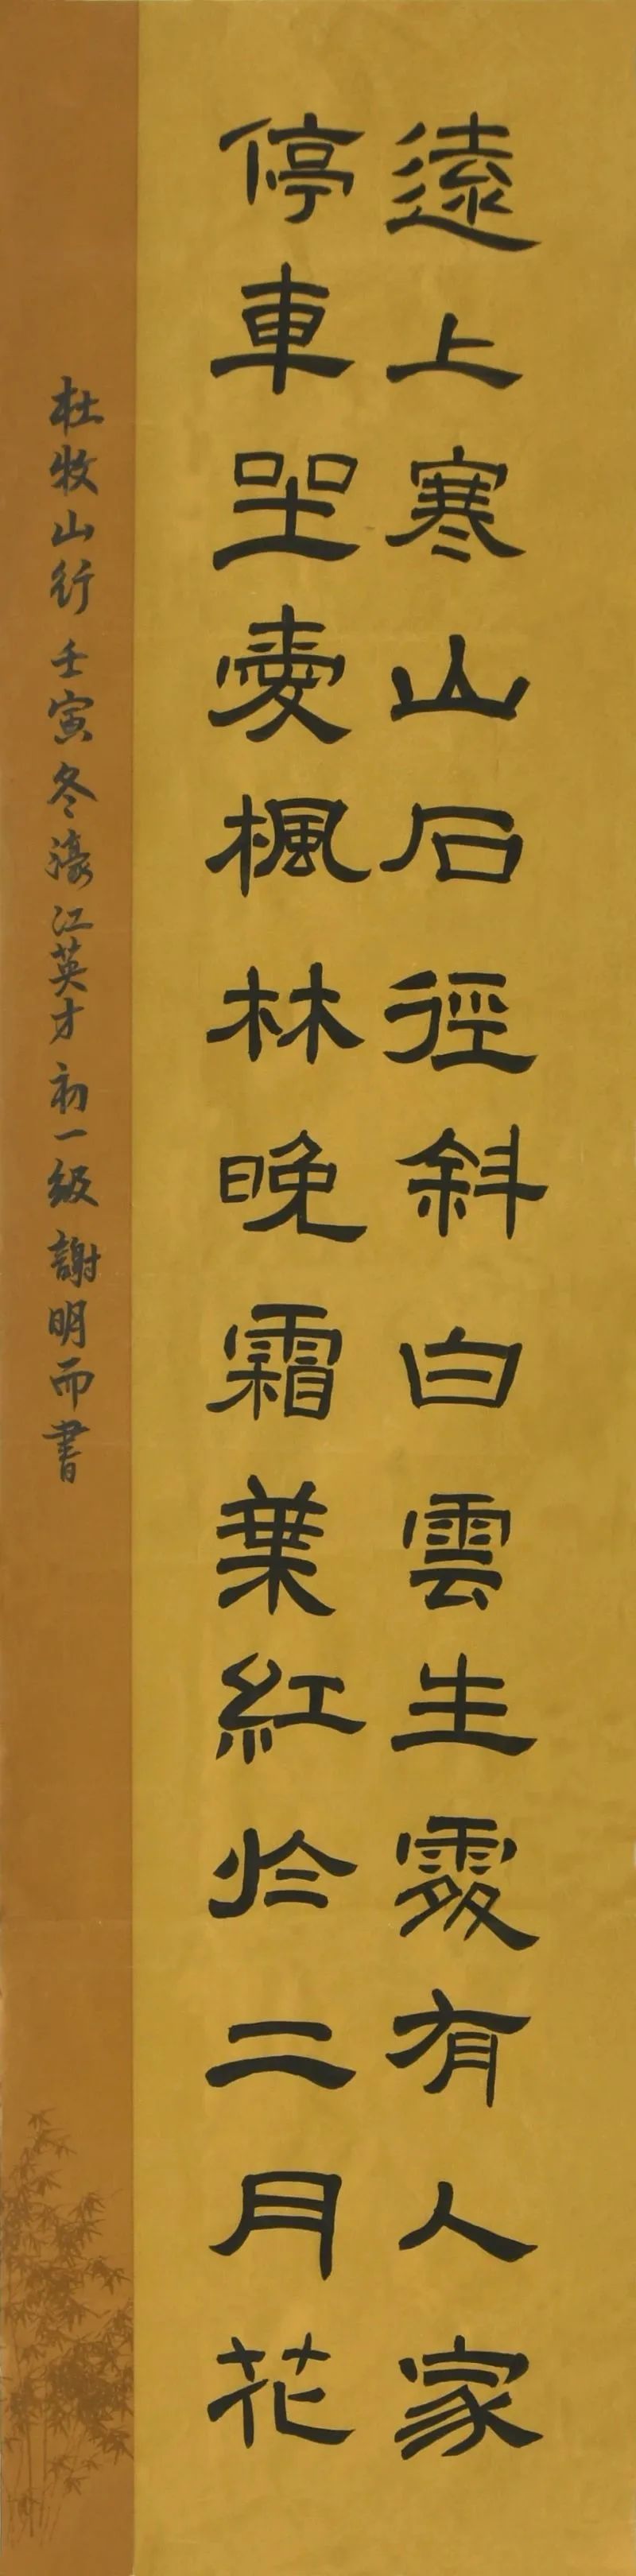 遠上寒山石徑斜白雲生處有人家
停車坐愛楓林晚霜葉紅於二月花
杜牧山行 壬寅冬濠江英才初一級 謝明而書